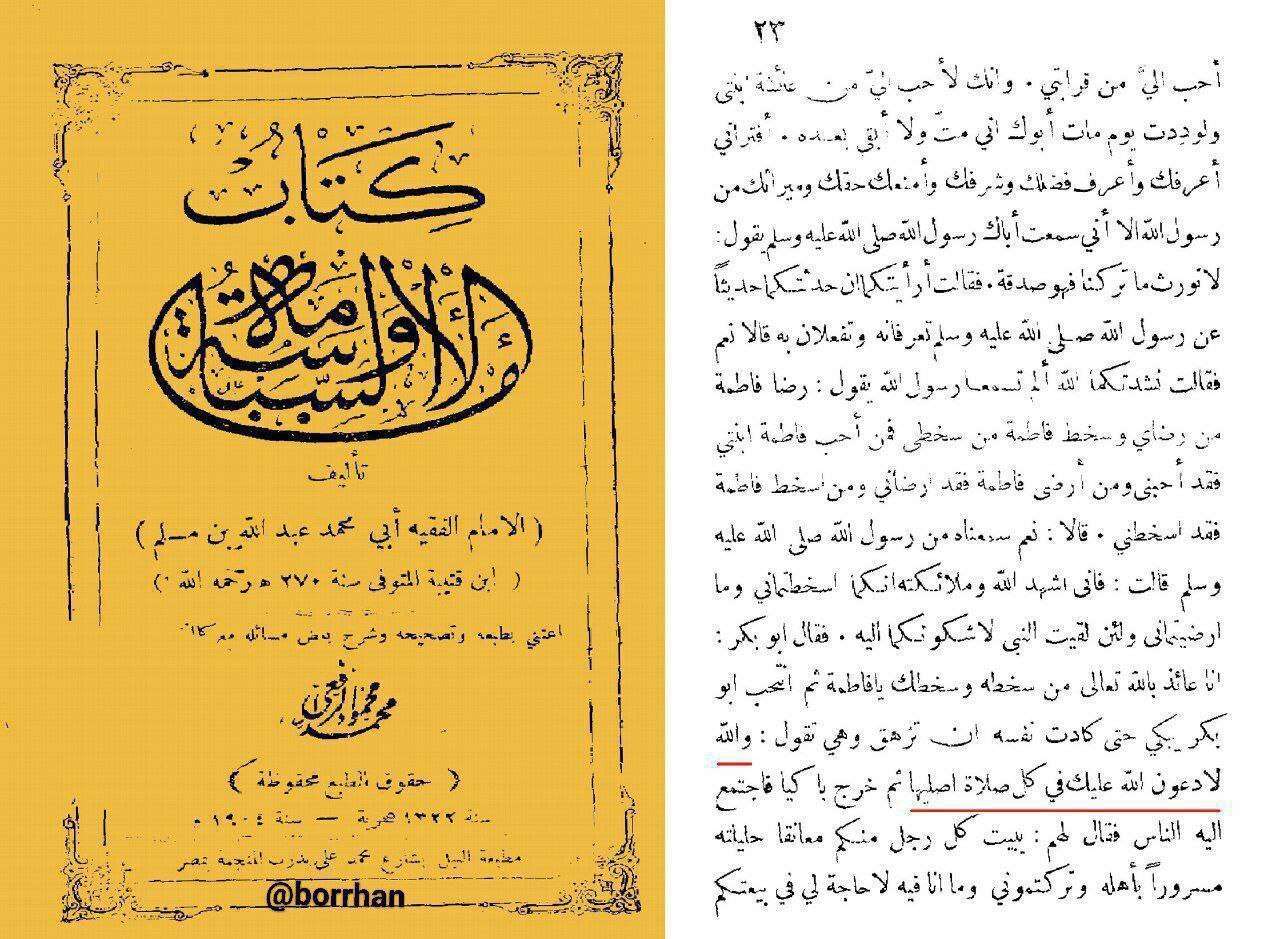 كتاب
الإمامة والسياسة
تأليف
( الامام الفقيه أبي محمد عبد الله بن مسلم )
( ابن قتيبة المتوفى سنة ٢٧٠ ه رحمه الله )
اعتني بطبعه وتصحيحه وشرح بعض مسائله مع
محمد محمود الرافعي
( حقوق الطبع محفوظة )
سنة ١٣٢٢ هجرية — سنة ١٩٠٤ م
مطبعة النيل بشارع محمد علي بدرب المنجمة بمصر
@borrhan
٢٣
أحب اليّ من قرابتي . وانك لأحب اليّ من عائشة ابنتى
ولوددت يوم مات أبوك اني متّ ولا أبقى بعده . أفتراني
أعرفك وأعرف فضلك وشرفك وأمنعك حقك وميراثك من
رسول الله الا أني سمعت أباك رسول الله صلى الله عليه وسلم يقول :
لا نورث ما تركنا فهو صدقة . فقالت أرأيتكما ان حدثتكما حديثاً
عن رسول الله صلى الله عليه وسلم تعرفانه وتفعلان به قالا نعم
فقالت نشدتكما الله ألم تسمعا رسول الله يقول : رضا فاطمة
من رضاي وسخط فاطمة من سخطى فمن أحب فاطمة ابنتي
فقد أحبنى ومن أرضى فاطمة فقد ارضاني ومن اسخط فاطمة
فقد اسخطني . قالا : نعم سمعناه من رسول الله صلى الله عليه
وسلم قالت : فانى اشهد الله وملائكته انكما اسخطتماني وما
ارضيتمانى ولئن لقيت النبي لاشكونكما اليه . فقال ابو بكر :
انا عائذ بالله تعالى من سخطه وسخطك يافاطمة ثم انتحب ابو
بكر يبكي حتى كادت نفسه ان تزهق وهي تقول : والله
لادعون الله عليك في كل صلاة اصليها ثم خرج باكيا فاجتمع
اليه الناس فقال لهم : يبيت كل رجل منكم معانقا حليلته
مسروراً بأهله وتركتموني وما انا فيه لا حاجة لي في بيعتكم